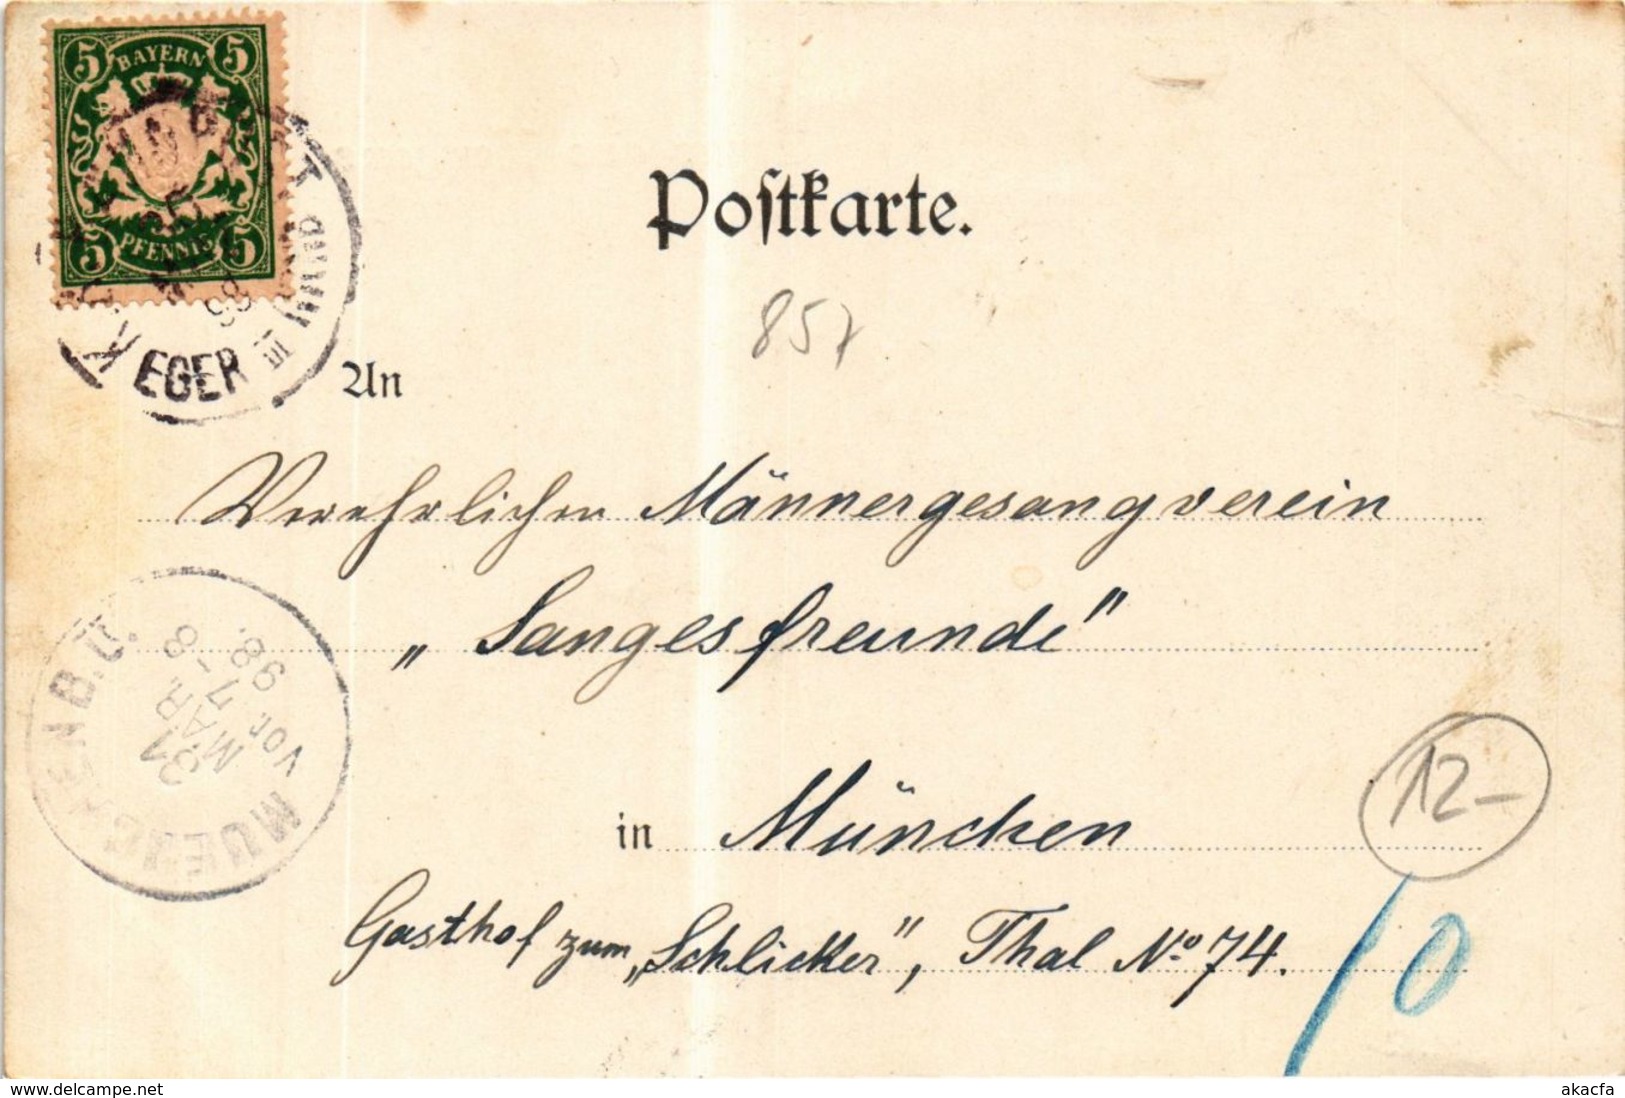 5 BAYERN 5
5 PFENNIG 5
EGER III
Postkarte.
857
An
Verehrlichen Männergesangverein
„Sangesfreunde"
MUENCHEN B.Ü.
31
MAR.
Vor. 7-8
98.
in München
12-
Gasthof zum „Schlicker", Thal No 74.
10
akacfa